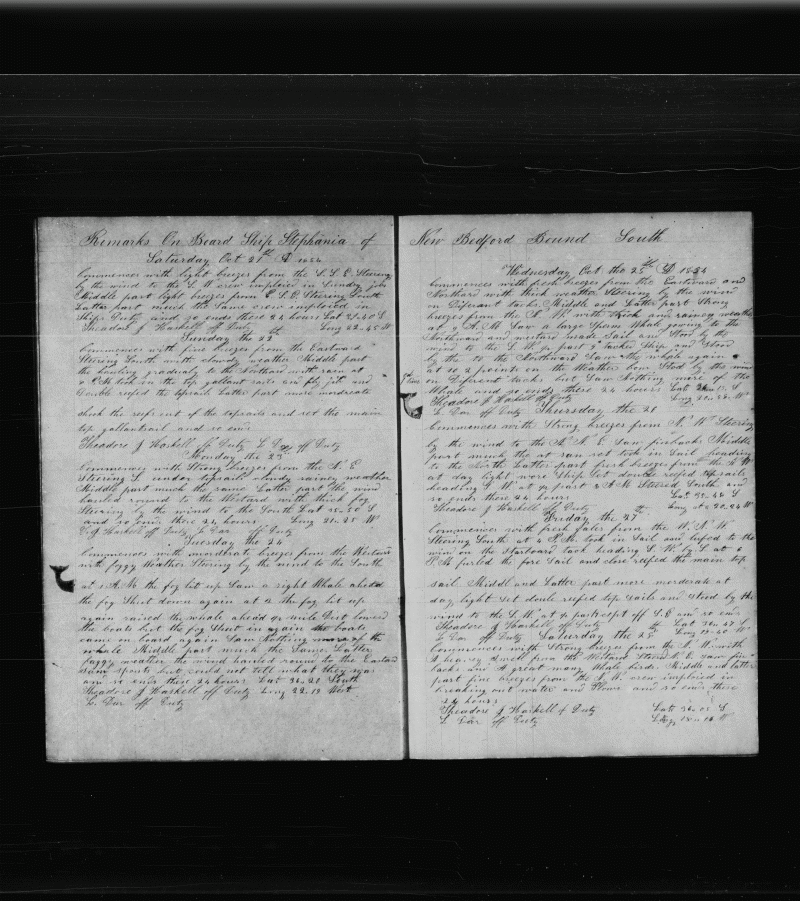 Remarks On Board Ship Stephania of
Saturday Oct 21st AD 1854
Commences with light breezes from the S.S.E. Steering
by the wind to the S.W. crew imploied in Sundry jobs
Middle part light breezes from E.S.E. Steering South
Latter part much the Same crew imploied in
Ships Duty and so ends these 24 hours Lat 31.40 S
Theadore J Haskell off Duty Long 22.45 W
Sunday the 22
Commences with fine breezes from the Eastward
Steering South with cloudy weather Middle part
the hauling gradualy to the Northard with rain at
took in the top gallant sails and fly jib and
Double reefed the topsails Latter part more mordreate
shook the reefs out of the topsails and set the main
top gallantsail and so ends
Theadore J Haskell off Duty L Dar off Duty
Monday the 23rd
Commences with Strong breezes from the N.E
Steering S. under topsails cloudy rainey weather
Middle part much the same Latter part the wind
hauled round to the Westard with thick fog
Steering by the wind to the South Lat
and so ends these 24 hours Long 21.28 W
T J Haskell off Duty L Dar off Duty
Tuesday the 24
Commences with mordrate breezes from the Westard
with foggy Weather Steering by the wind to the South
at A.M. the fog lit up Saw a right Whale ahead
the fog Shut down again at the fog lit up
again raised the whale ahead mile Dist lowed
the boats but the fog Shut in again the boats
came on board again Saw Nothing more of the
whale Middle part much the Same Latter
foggy weather the wind hauled round to the Eastard
Saw Spouts but could not tell what they was
and so ends these 24 hours Lat South
Theadore J Haskell off Duty Long 22.19 West
L. Dar off Duty
New Bedford Bound South
Wednesday Oct the 25th AD 1854
Commences with fresh breezes from the Eastward and
Northard with thick weather Steering by the wind
on Diferent tacks Middle and Latter part Strong
breezes from the N.W. with thick and rainey weather
at A.M Saw a large Sperm Whale gowing to the
Northward and westard made Sail and Stood by the
wind to the S.W. part tacked Ship and Stood
by the to the Northward Saw the whale again
at 10 2 points on the Weather bow Stod by the wind
on Diferent tacks but Saw Nothing more of the
Whale and so ends these 24 hours Lat S
Theadore J Haskell off Duty Long W
L Dar off Duty Thursday the 26
Commences with Strong breezes from N.W. Steering
by the wind to the N.N.E. Saw finbacks Middle
part much the at ran set took in Sail heading
to the North Latter part fresh breezes from the N W
at day light wore Ship Set double reefed topsails
heading S.W. at past A.M Steered South and
so ends these 24 hours Lat S
Theadore J Haskell off Duty Long W
Friday the 27th
Commences with fresh gales from the W.N.W.
Steering South at 4 P.M. took in Sail and lufed to the
wind on the Starboard tack heading S.W. by S. at 6
P.M furled the fore Sail and close reefed the main top
sail Middl and Latter part more mordreate at
day light Set double reefed top sails and Stood by the
wind to the S.W. at kept off S.E and so ends
Theadore J Haskell off Duty Lat S
L Dar off Duty Saturday the 28th Long W
Commences with Strong breezes from the S.W. with
a heavey Swell from the Westard Steerd S.E Saw fin
backs and a great many Whale birds Middle and latter
part fine breezes from the S.W. crew imploied in
breaking out water and Flower and so ends these
24 hours
Theadore J Haskell of Duty Lat S
L Dar off Duty Long W